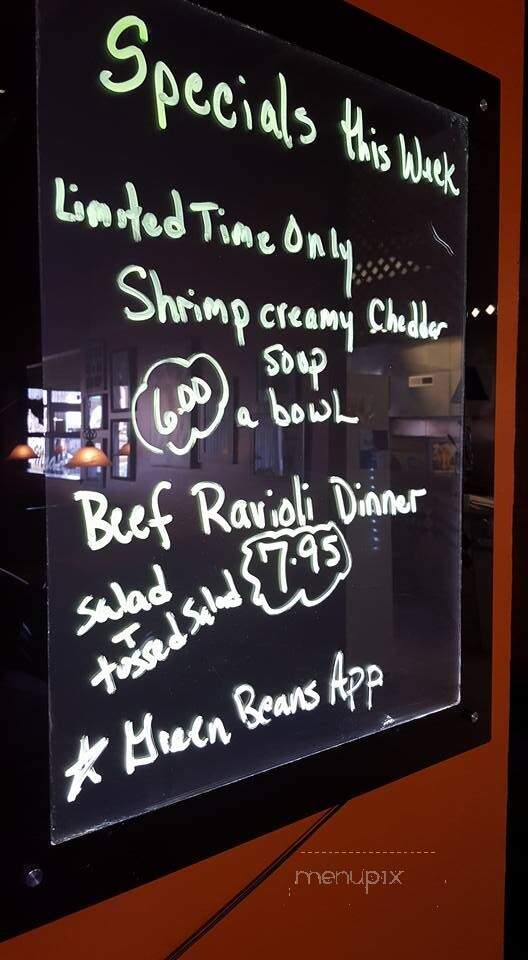 Specials this Week
Limited Time Only
Shrimp creamy Chedder
soup
6.00 a bowl
Beef Ravioli Dinner
salad 7.95
tossed salad
* Green Beans App
menupix